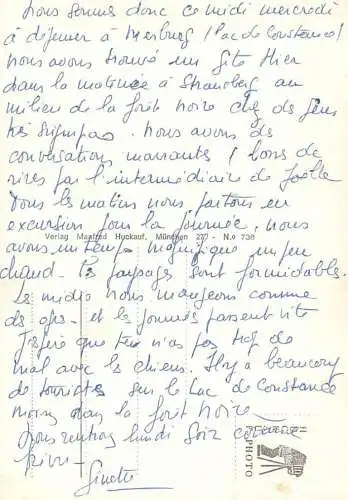 nous sommes donc ce midi mercredi
à déjeuner à Mersburg (Lac de Constance)
nous avons trouvé un gîte Hier
dans la matinée à au
milieu de la forêt noire chez des gens
très sympas. nous avons des
conversation marrants (bons de
rires par l'intermédiaire de Joëlle
Tous les matins nous partons en
excursion pour la journée. nous
Verlag Manfred Huckauf, München 277 - N.o 738
avons un temps magnifique un peu
chaud - les paysages sont formidables.
Les midis nous mangeons comme
des ogres - et les journées passent vite
J'espère que tu n'as pas trop de
mal avec les chiens. Il y a beaucoup
de touristes sur le Lac de Constance
moins dans la forêt noire
nous rentrons lundi soir
PHOTO
Ginette